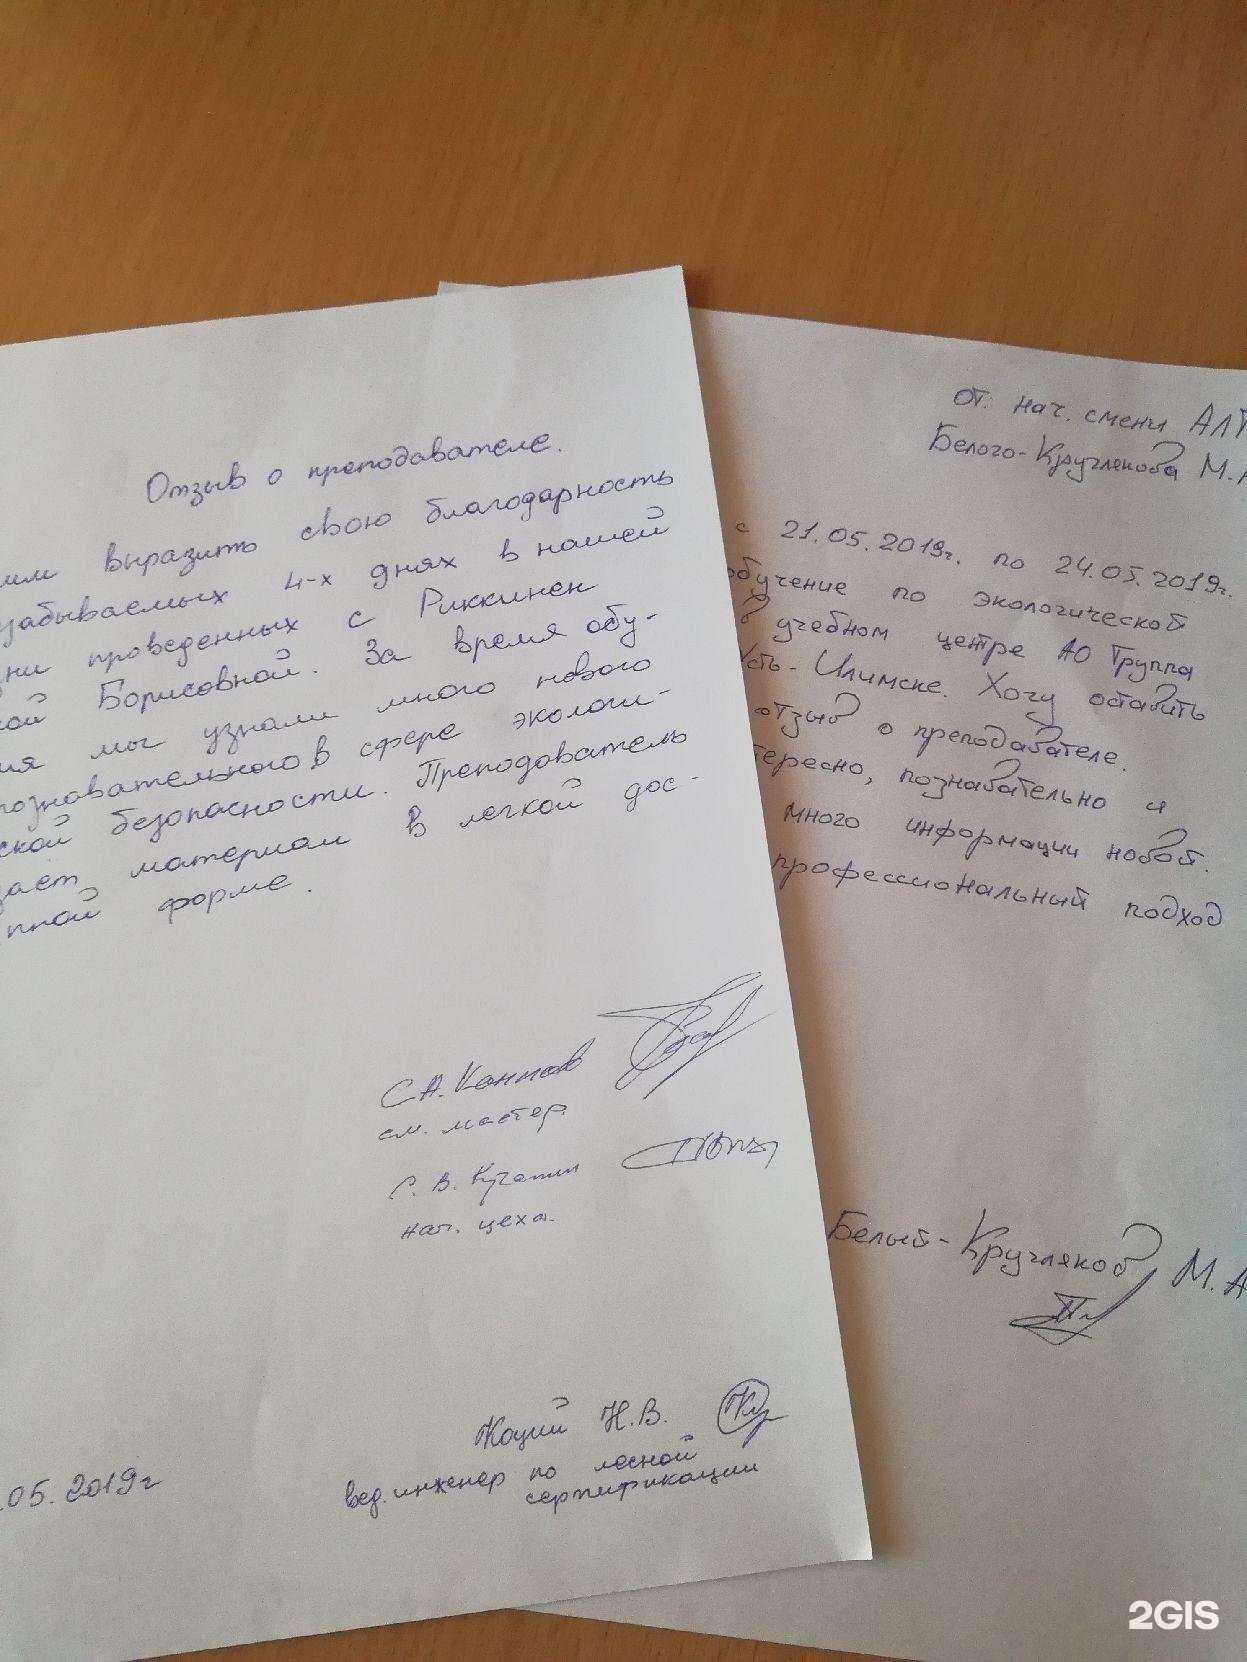 Отзыв о преподавателе.
им выразить свою благодарность
забываемых 4-х днях в нашей
ни проведенных с Риккинен
ой Борисовной. За время обу-
ия мы узнали много нового
познавательного в сфере экологи-
ской безопасности. Преподователь
дает материал в легкой дос-
пной форме.
С.А.
см. мастер.
С. В.
нач. цеха.
Коций Н.В.
вед. инженер по лесной
сертификации
.05.2019г
от. нач. смены АЛТ
Белого-Круглякова М.А
с 21.05.2019г. по 24.05.2019г.
обучение по экологической
в учебном центре АО Группа
Усть-Илимске. Хочу оставить
отзыв о преподавателе.
тересно, познавательно и
много информации новой.
профессиональный подход
Белый-Кругляков М.А
2GIS